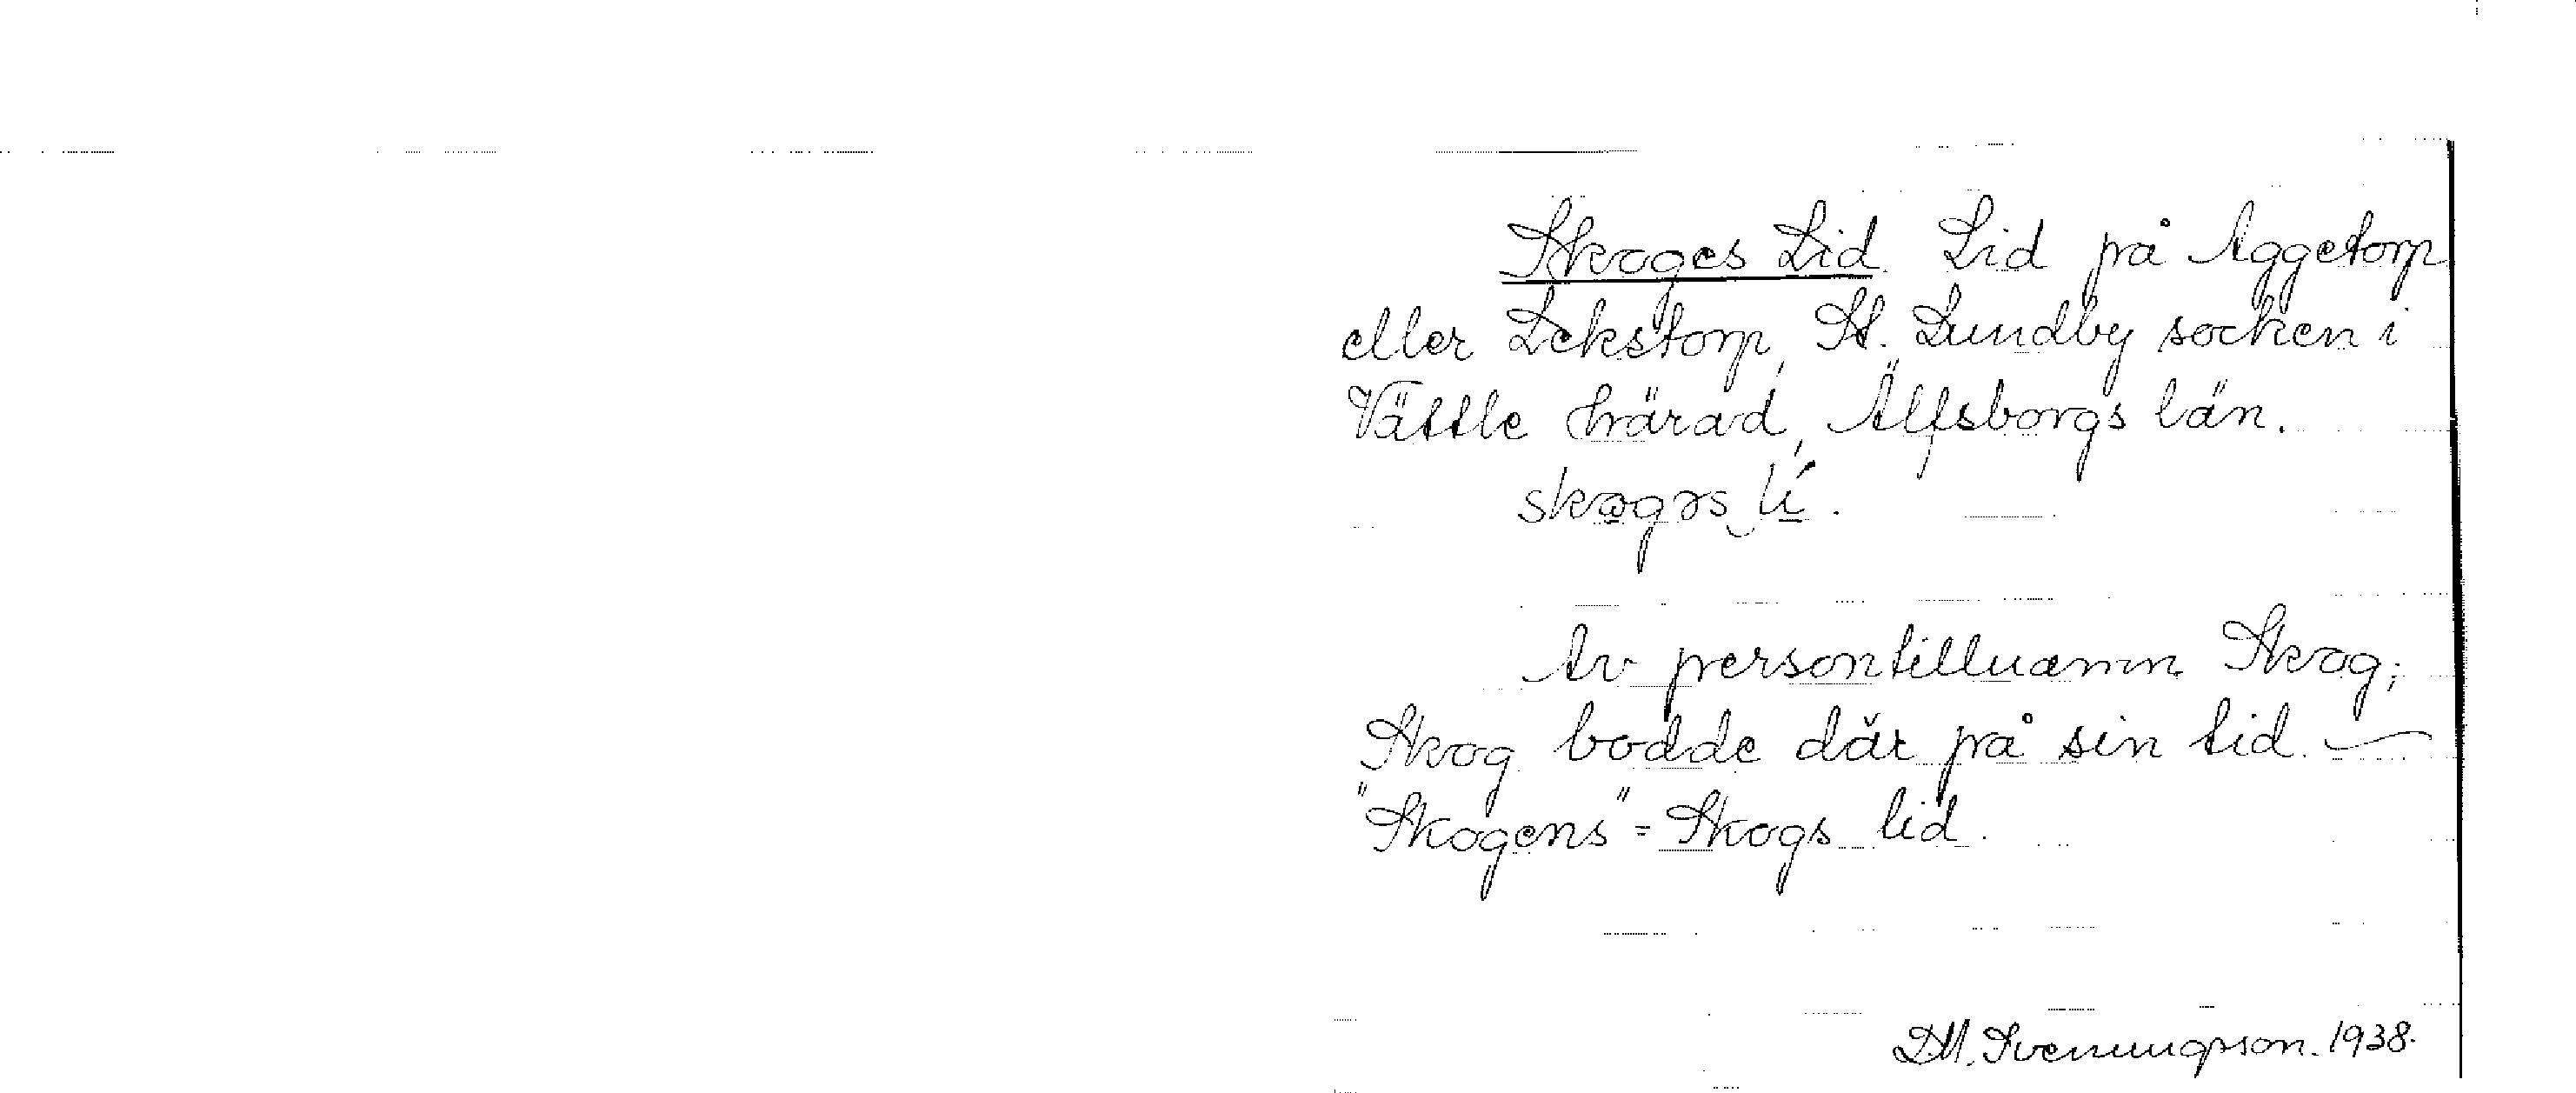 Skoges Lid. Lid på Aggetorp
eller Lekstorp, St. Lundby socken i
Vättle härad, Älfsborgs län.
skogəs lí.
Av persontillnamn Skog;
Skog bodde där på sin tid. —
"Skogens" = Skogs lid.
D.M. Svenungsson. 1938.